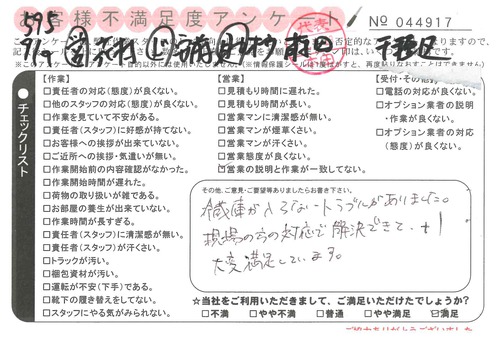 お客様不満足度アンケート
No 044917
595
代表
チェックリスト
【作業】
□責任者の対応(態度)が良くない。
□他のスタッフの対応(態度)が良くない。
□作業を見ていて不安がある。
□責任者(スタッフ)に好感が持てない。
□お客様への挨拶が出来ていない。
□ご近所への挨拶・気遣いが無い。
□作業開始前の内容確認がなかった。
□作業開始時間が遅れた。
□荷物の取り扱いが雑である。
□お部屋の養生が出来ていない。
□作業時間が長すぎる。
□責任者(スタッフ)に清潔感が無い。
□責任者(スタッフ)が汗くさい。
□トラックが汚い。
□梱包資材が汚い。
□運転が安(下手)である。
□靴下の履き替えをしてない。
□スタッフにやる気がみられない。
【営業】
□見積もり時間に遅れた。
□見積もり時間が長い。
□営業マンに清潔感が無い。
□営業マンが煙草くさい。
□営業マンが汗くさい。
□営業態度が良くない。
□営業の説明と作業が一致してない。
【受付・その他】
□電話の対応が良くない。
□オプション業者の説明・作業が良くない。
□オプション業者の対応(態度)が良くない。
その他、ご意見・ご要望等ありましたらお書き下さい。
蔵庫が入らないトラブルがありました。
現場の方の対応で解決できて、
大変満足しています。
☆当社をご利用いただきまして、ご満足いただけたでしょうか?
□不満 □やや不満 □普通 □やや満足 ☑満足
ご協力ありがとうございました